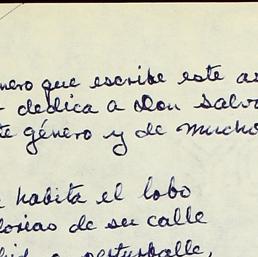 nero que escribe este a
dedica a Don Salv
te género y de mucho
habita el lobo
lorias de su calle
perturballe,